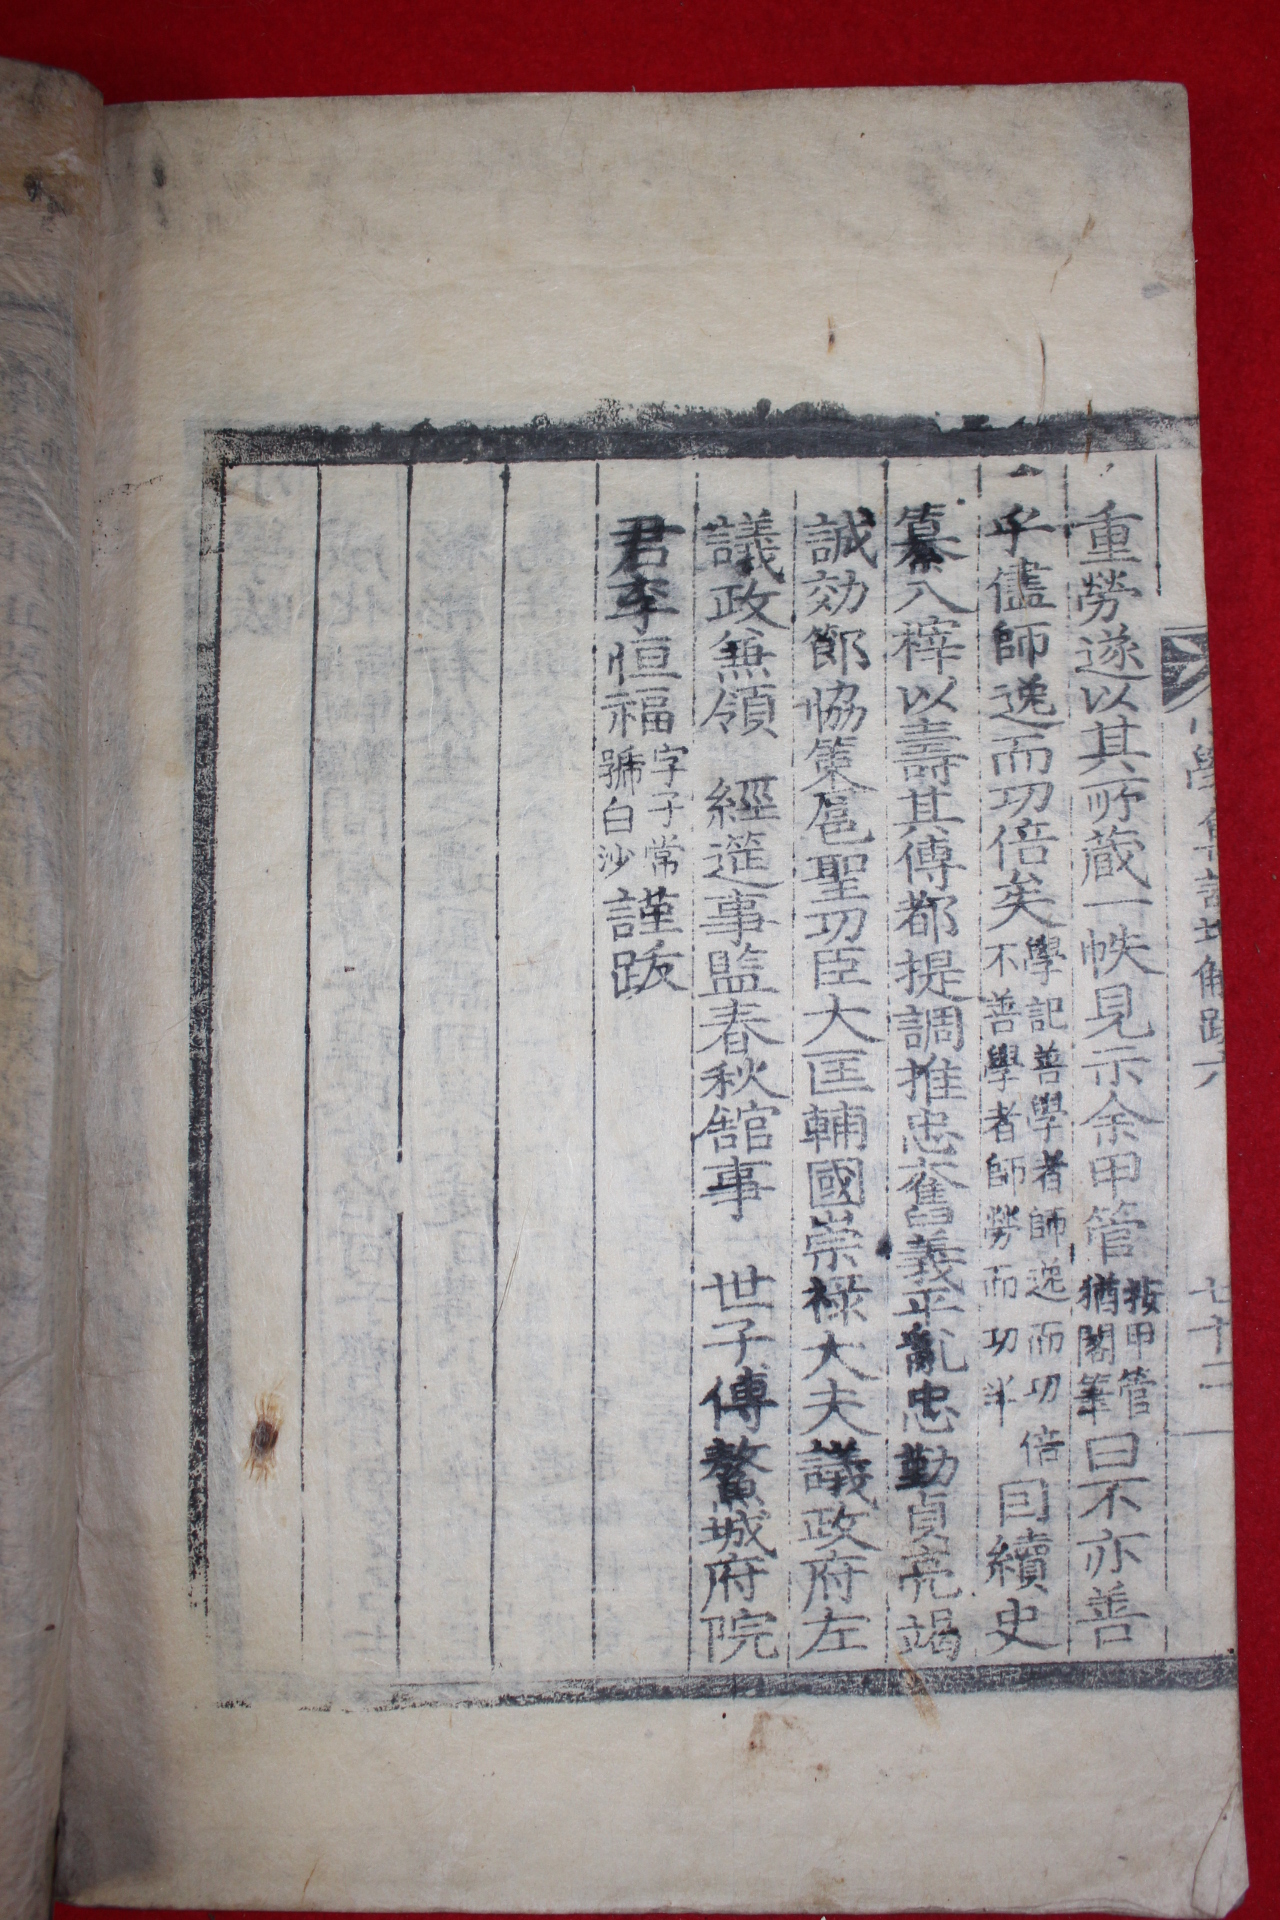 學集註增解跋六 七十二
重勞遂以其所藏一帙見示余甲管按甲管猶閣筆曰不亦善
乎儘師逸而功倍矣學記善學者師逸而功倍不善學者師勞而功半囙續史
纂入梓以壽其傳都提調推忠奮義平亂忠勤貞亮竭
誠効節協策扈聖功臣大匡輔國崇祿大夫議政府左
議政兼領 經筵事監春秋館事 世子傅鰲城府院
君李恒福字子常號白沙謹跋